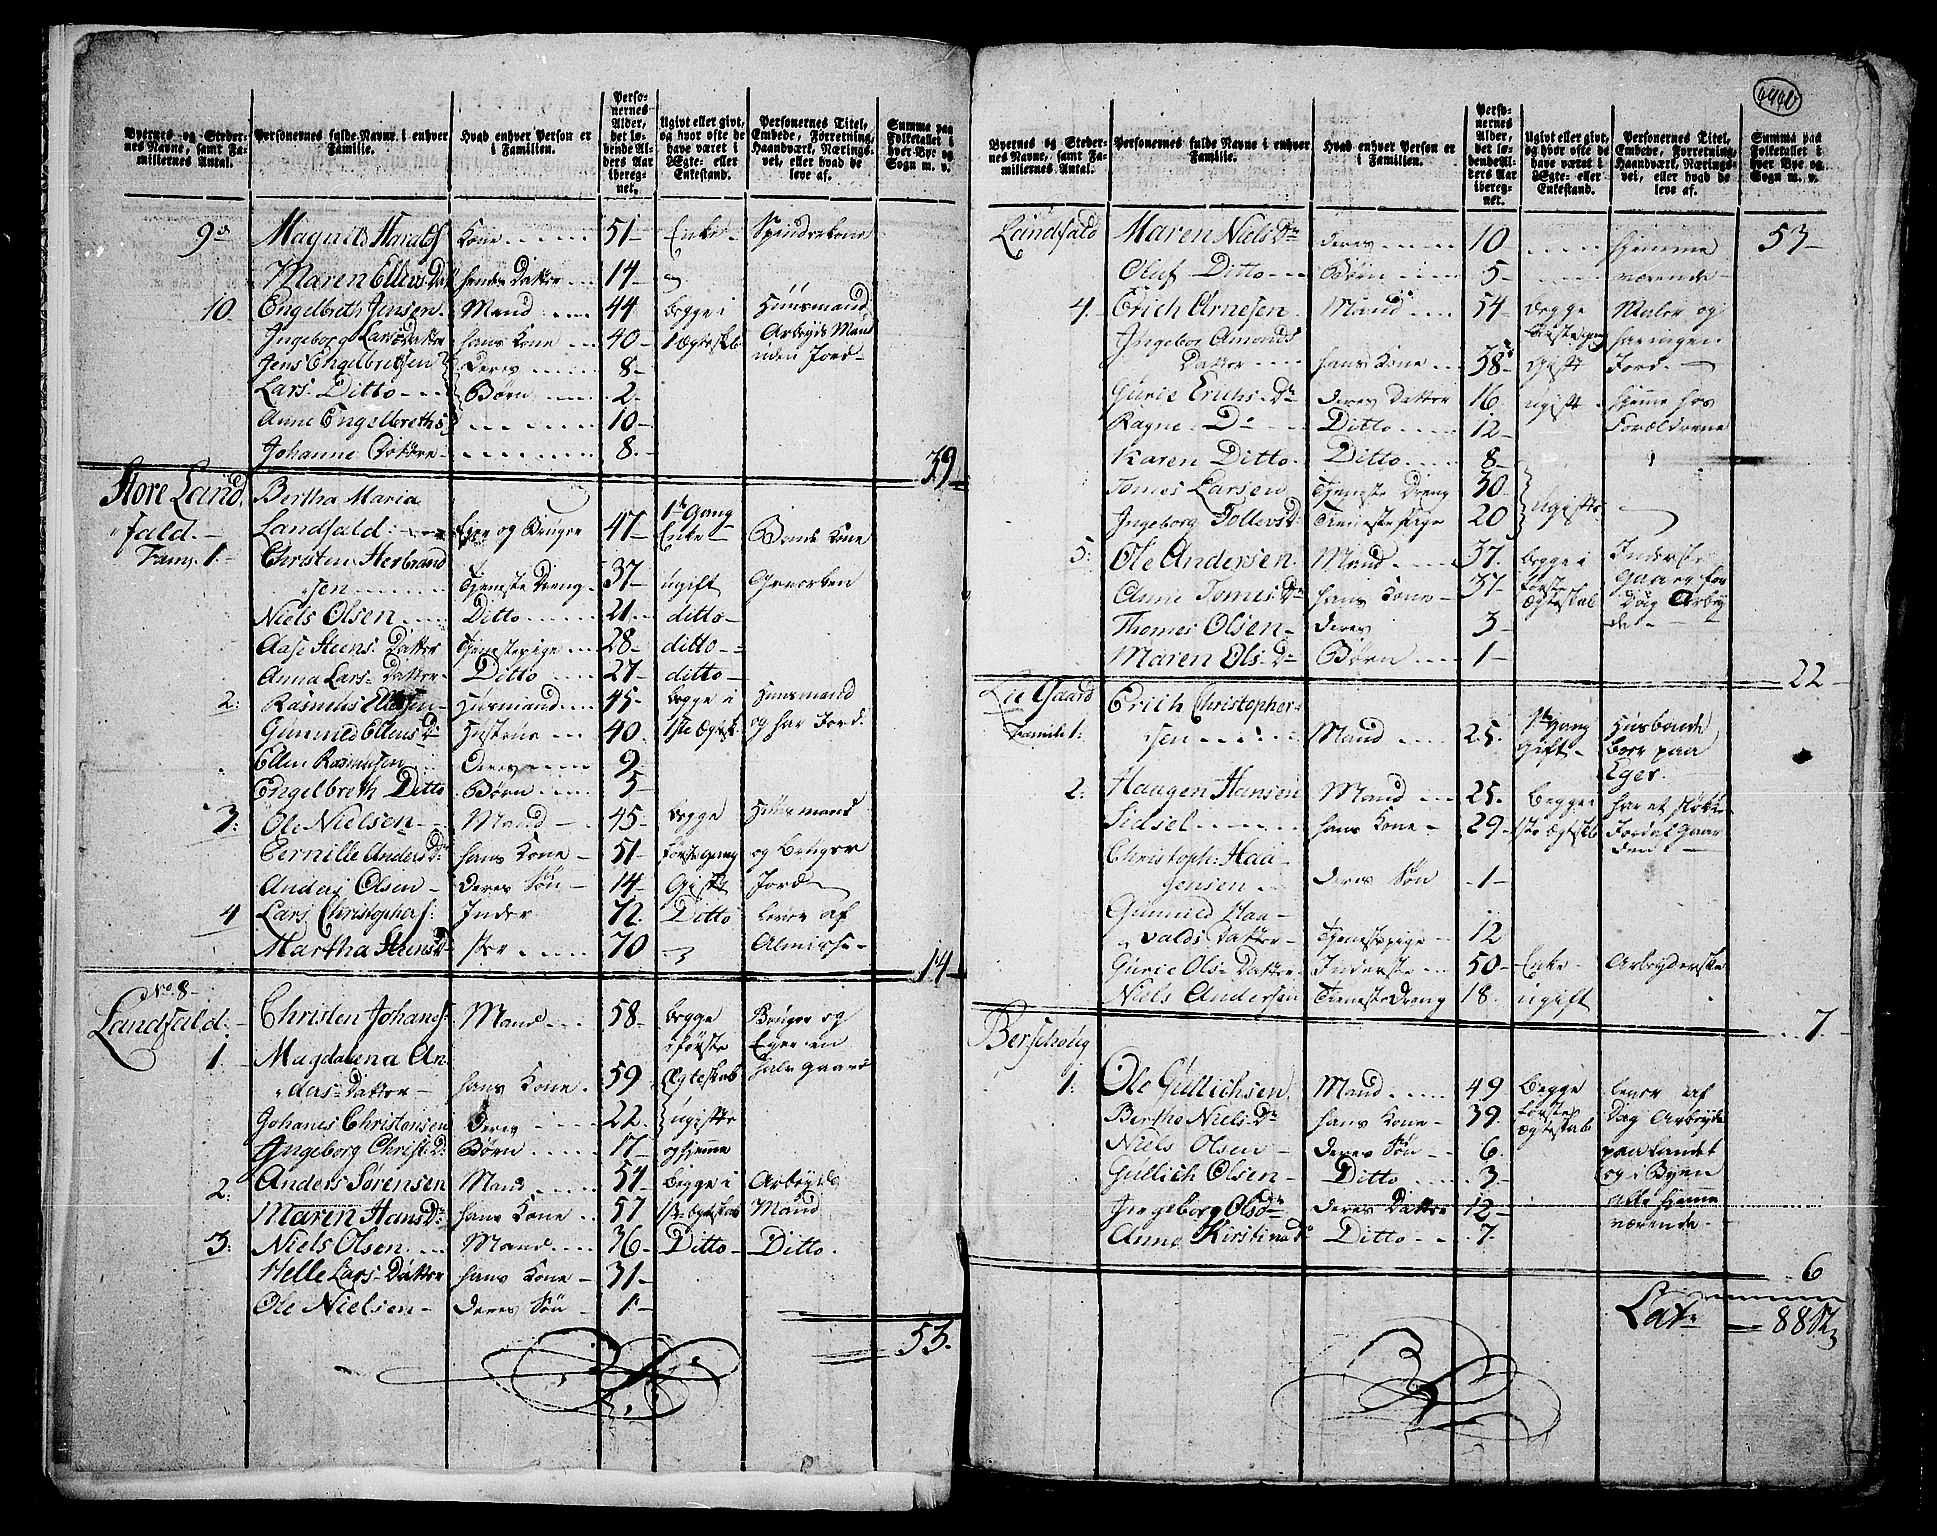 Byernes og Steder-
nes Navne, samt Fa-
miliernes Antal.
Personernes fulde Navne i enhver
Familie.
Hvad enhver Person er
i Familien.
Perso-
nernes
Alder,
det lø-
bende Al-
ders Aar
ibereg-
net.
Ugivt eller givt,
og hvor ofte de
have været i
Ægte- eller
Enkestand.
Personernes Titel,
Embede, Forretning,
Haandværk, Nærings-
vei, eller hvad de
leve af.
Summa paa
Folketallet i
hver Bye og
Sogn m. v.
9 Magnild Haralds Kone 51 Enke Spindrekone
Maren Ellens Dat hendes Datter 14
10 Engelbreth Jensen Mand 44 begge i Huusmand
Ingeborg Lars Datter hans Kone 40 1 Ægteskb Arbeyds Mand
Jens Engelbretsen Deres 8 uden Jord
Lars Ditto Børn 2
Anne Engelbreths 10
Johanne Døttre 8
39
Store Land Bertha Maria
fald Landfald Eyer og Bruger 47 1ste Gang Enke Bonde Kone
Fam. 1 Christen Herbrand
sen Tjeneste Dreng 37 ugift Gevorben
Niels Olsen Ditto 21 ditto
Aase Steens Datter Tjenestepige 28 ditto
Anna Lars Datter Ditto 27 ditto
2: Rasmus Ellefsen Huusmand 45 begge i Huusmand
Gunnild Ellens Dr Hustrue 40 1ste Ægtesk og har Jord
Ellen Rasmusen Deres 9
Engelbreth Ditto Børn 5
3: Ole Nielsen Mand 45 begge Huusmand
Pernille Anders Dr hans Kone 51 første gang og bruger
Anders Olsen Deres Søn 14 Gift Jord
4 Lars Christophers: Inder 72 Ditto lever af
Martha Steens D ster 70 Almisse
14
No. 8
Landfald Christen Johans Mand 58 begge Bruger og
1. Magdalena An i første Eyer en
ders Datter hans Kone 59 Ægteskab halv gaard
Johanes Christensen Deres 22 ugifte
Ingeborg Christ: D: Børn 17 og hjemme
2: Anders Sørensen Mand 54 begge i Arbeyds
Maren Hans Dr: hans Kone 57 1ste Ægteskab Mand
3: Niels Olsen Mand 36 Ditto Ditto
Helle Lars Datter hans Kone 31
Ole Nielsen Deres Søn 1
53
Byernes og Steder-
nes Navne, samt Fa-
miliernes Antal.
Personernes fulde Navne i enhver
Familie.
Hvad enhver Person er
i Familien.
Perso-
nernes
Alder,
det lø-
bende Al-
ders Aar
ibereg-
net.
Ugivt eller givt,
og hvor ofte de
have været i
Ægte- eller
Enkestand.
Personernes Titel,
Embede, Forretning,
Haandværk, Nærings-
vei, eller hvad de
leve af.
Summa paa
Folketallet i
hver Bye og
Sogn m. v.
Landfald Maren Niels Dr deres 10 hjemme 53
Oluf Ditto Børn 5 værende
4 Erich Arnesen Mand 54 begge Maler og
Ingebor Amonds første gang har ingen
Datter hans Kone 38 Gift Jord
Gurie Erichs Dr deres Datter 16 ugift hjemme hos
Ragne D Ditto 12 Forældrene
Karen Ditto Ditto 8
Tomes Larsen Tjeneste Dreng 30 ugifte
Ingeborg Tollevs D: Tieneste pige 20
5: Ole Andersen Mand 37 begge i Inderster
Anne Tomes Dr hans Kone 37 første Gaaer for
Thomes Olsen deres 3 Ægteskab Dag Arbey
Maren Ols Dr Børn 1 de
22
Lie Gaard Erich Christopher
Famili 1: sen Mand 25 1ste Gang Gift Husbonde boer paa Eger
2: Haagen Hansen Mand 25 Begge i har et støkke
Sidsel hans Kone 29 1ste Ægteskb Jord af Gaar
Christoph: Haa den
gensen deres Søn 1
Gunnild Haa
valds Datter Tjenestepige 12
Gurie Ols Datter Inderste 50 Enke Arbeyderske
Niels Andersen TienesteDreng 18 ugift
7
Berschoug
1: Ole Gullichsen Mand 49 Begge lever af
Berthe Niels Dr hans Kone 39 første Dag Arbeyde
Niels Olsen deres Søn 6 Ægteskab paa Landet
Gullich Olsen Ditto 3 og i Byen
Ingeborg Ols Dr deres Datter 12 alle hjemme
Anne Kirstina D Ditto 7 værende
6
Lat 88